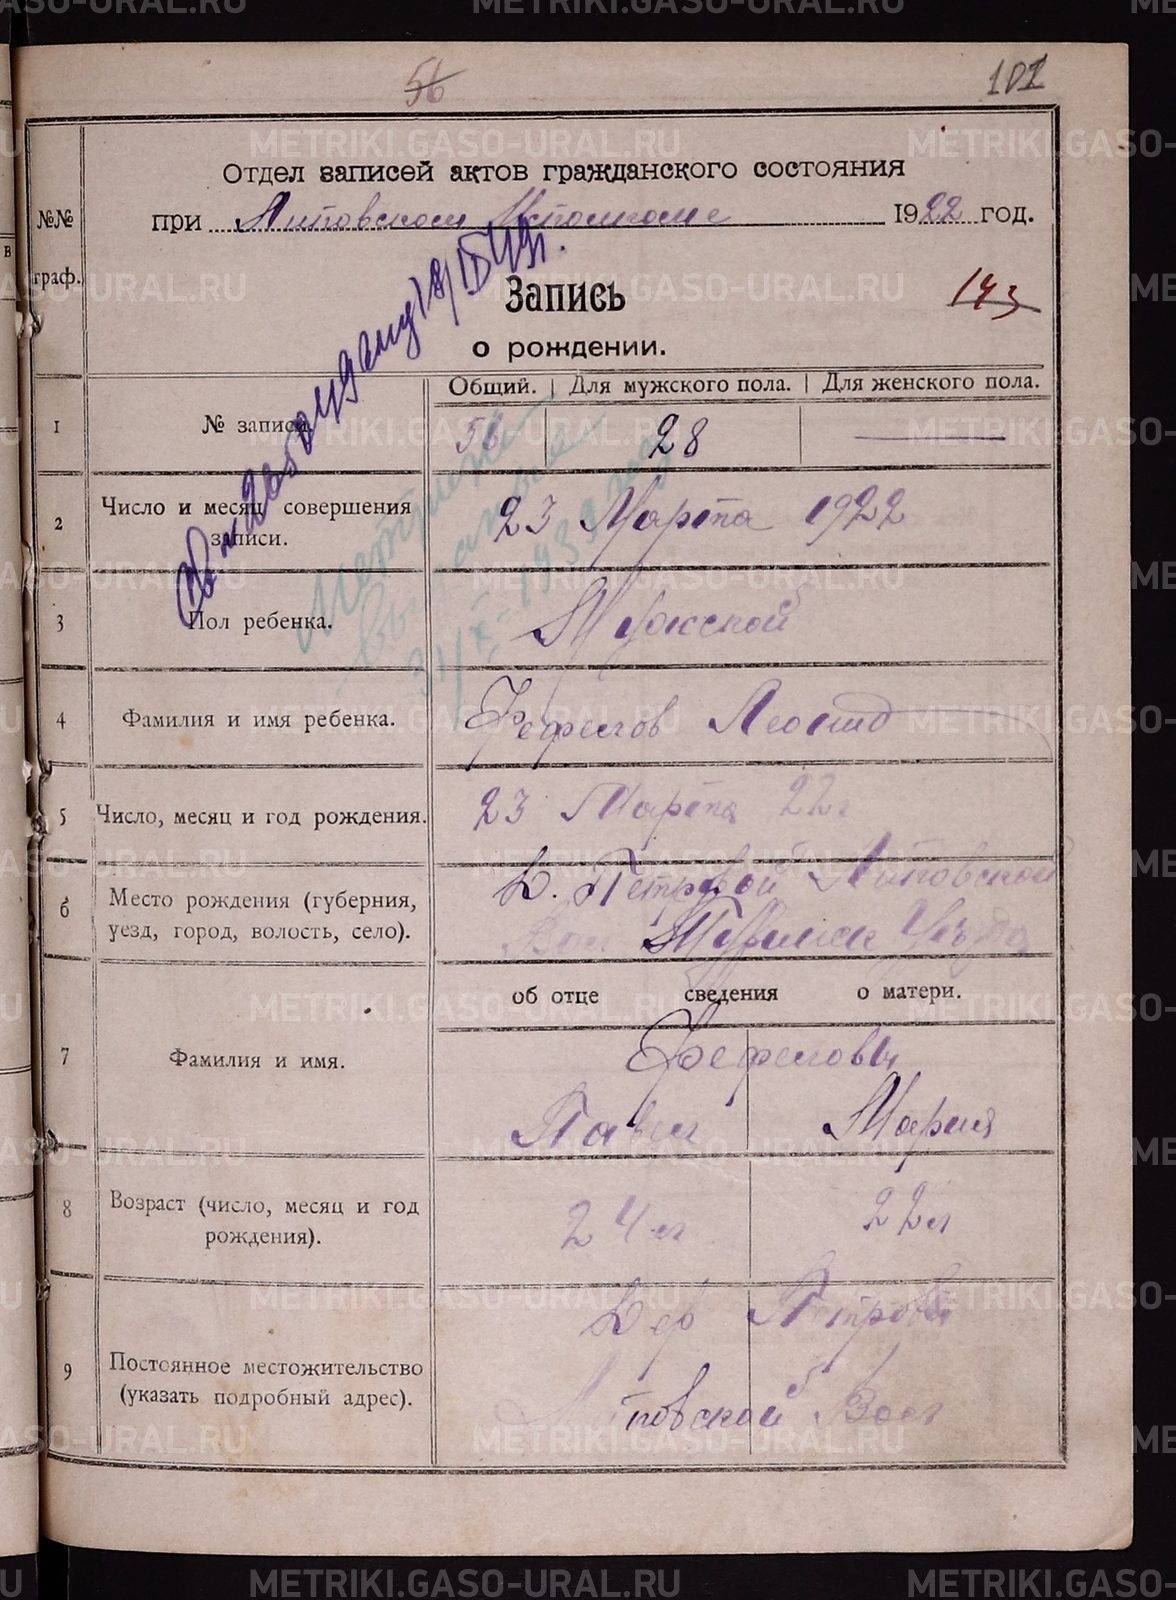 56
101
Отдел записей актов гражданского состояния
при Липовском Исполкоме 1922 год.
№№ граф.
Запись
о рождении.
143
Общий. Для мужского пола. Для женского пола.
1 № записи. 56 28
2 Число и месяц совершения записи. 23 Марта 1922
3 Пол ребенка. Мужской
4 Фамилия и имя ребенка. Фефелов Леонид
5 Число, месяц и год рождения. 23 Марта 22г
6 Место рождения (губерния, Д. Петровой Липовской
уезд, город, волость, село). Вол Туринск Уезда
об отце сведения о матери.
7 Фамилия и имя. Фефеловы
Павел Мария
8 Возраст (число, месяц и год рождения). 24 л 22 л
9 Постоянное местожительство Дер Петрова
(указать подробный адрес). Липовской Вол
METRIKI.GASO-URAL.RU